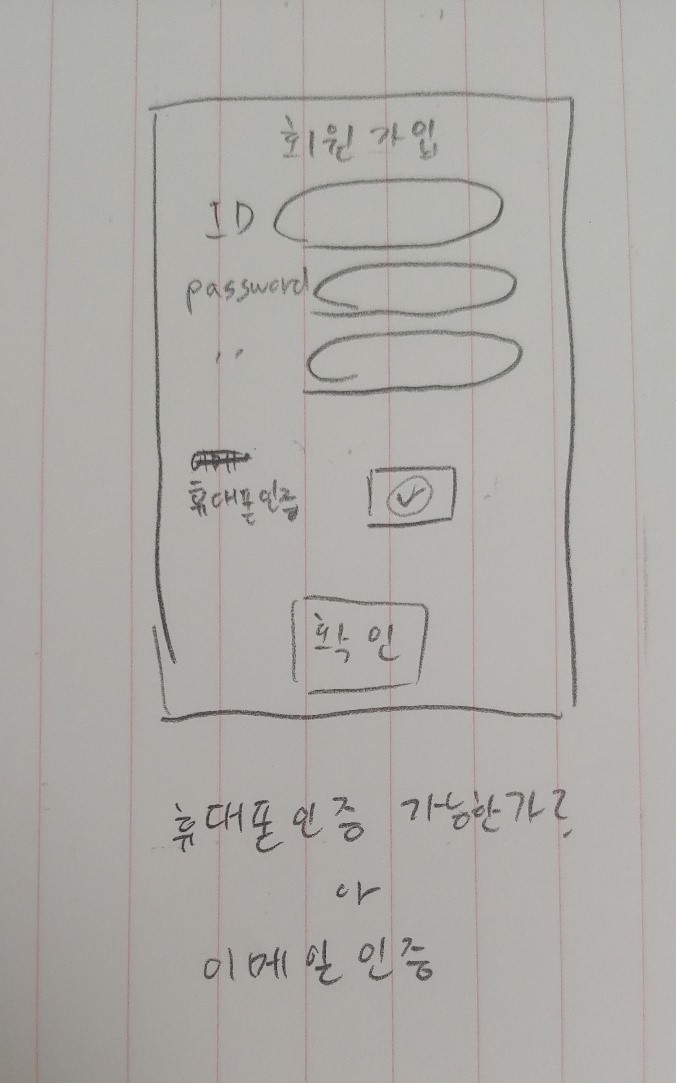 회원가입
ID
password
〃
휴대폰인증
확인
휴대폰인증 가능한가?
이메일인증